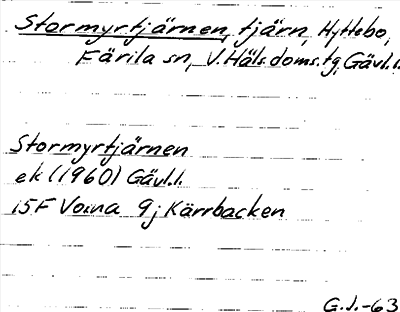 Stormyrtjärnen, tjärn, Hyttebo,
Färila sn, V. Häls. doms. tg, Gävl. l.
Stormyrtjärnen
ek (1960) Gävl. l.
15F Voxna 9j Kärrbacken
G.J.-63